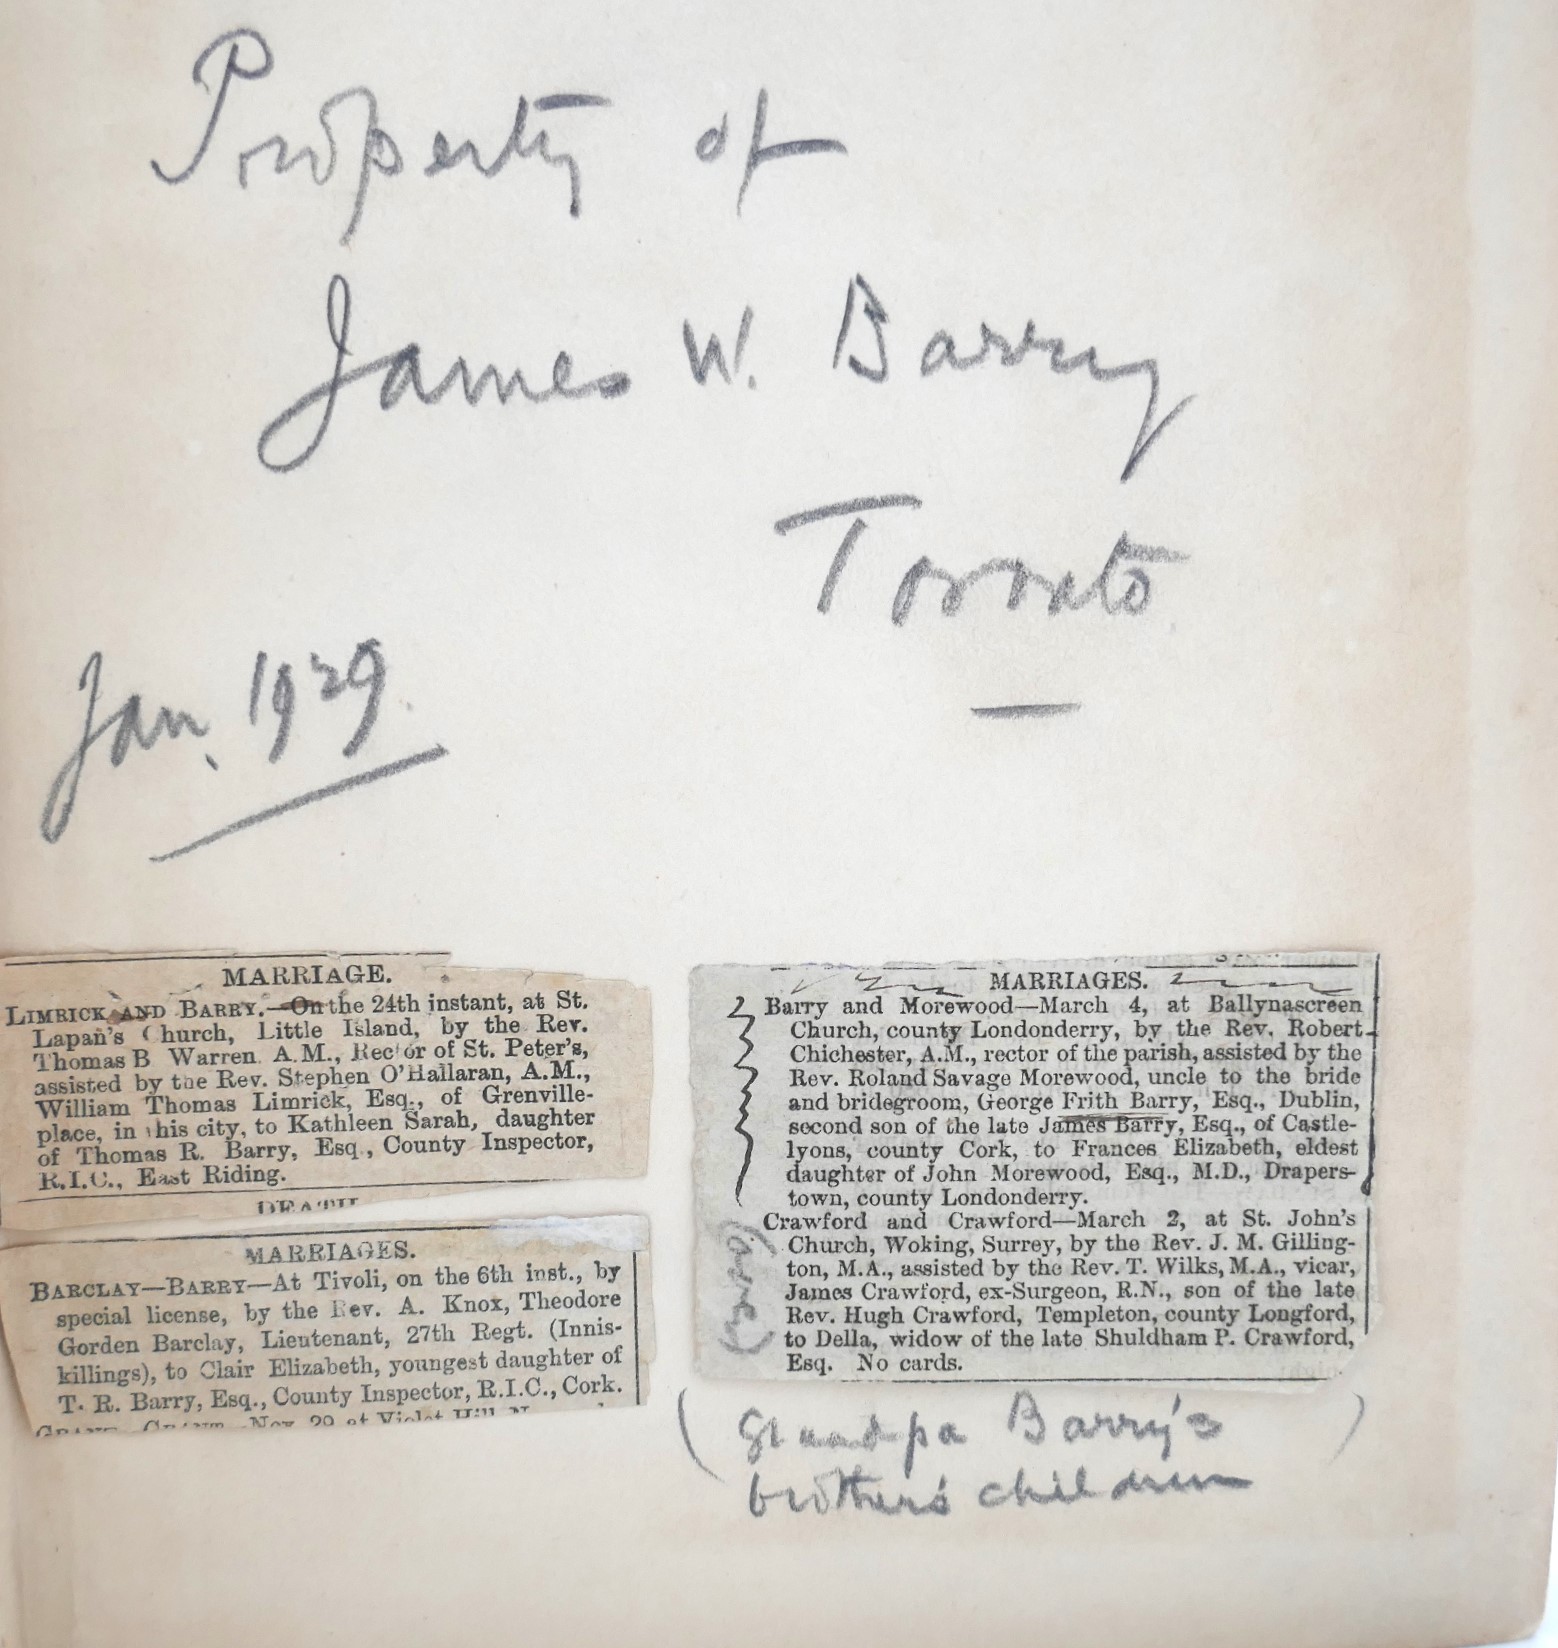 Property of
James W. Barry
Toronto
Jan. 1929.
MARRIAGE.
LIMRICK AND BARRY.—On the 24th instant, at St.
Lapan's Church, Little Island, by the Rev.
Thomas B Warren A.M., Rector of St. Peter's,
assisted by the Rev. Stephen O'Hallaran, A.M.,
William Thomas Limrick, Esq., of Grenville-
place, in this city, to Kathleen Sarah, daughter
of Thomas R. Barry, Esq., County Inspector,
R.I.C., East Riding.
DEATH
MARRIAGES.
BARCLAY—BARRY—At Tivoli, on the 6th inst., by
special license, by the Rev. A. Knox, Theodore
Gorden Barclay, Lieutenant, 27th Regt. (Innis-
killings), to Clair Elizabeth, youngest daughter of
T. R. Barry, Esq., County Inspector, R.I.C., Cork.
GRANT—GRANT—Nov 29 at Violet Hill
MARRIAGES.
Barry and Morewood—March 4, at Ballynascreen
Church, county Londonderry, by the Rev. Robert
Chichester, A.M., rector of the parish, assisted by the
Rev. Roland Savage Morewood, uncle to the bride
and bridegroom, George Frith Barry, Esq., Dublin,
second son of the late James Barry, Esq., of Castle-
lyons, county Cork, to Frances Elizabeth, eldest
daughter of John Morewood, Esq., M.D., Drapers-
town, county Londonderry.
Crawford and Crawford—March 2, at St. John's
Church, Woking, Surrey, by the Rev. J. M. Gilling-
ton, M.A., assisted by the Rev. T. Wilks, M.A., vicar,
James Crawford, ex-Surgeon, R.N., son of the late
Rev. Hugh Crawford, Templeton, county Longford,
to Della, widow of the late Shuldham P. Crawford,
Esq. No cards.
(Grandpa Barry's
brother's children)